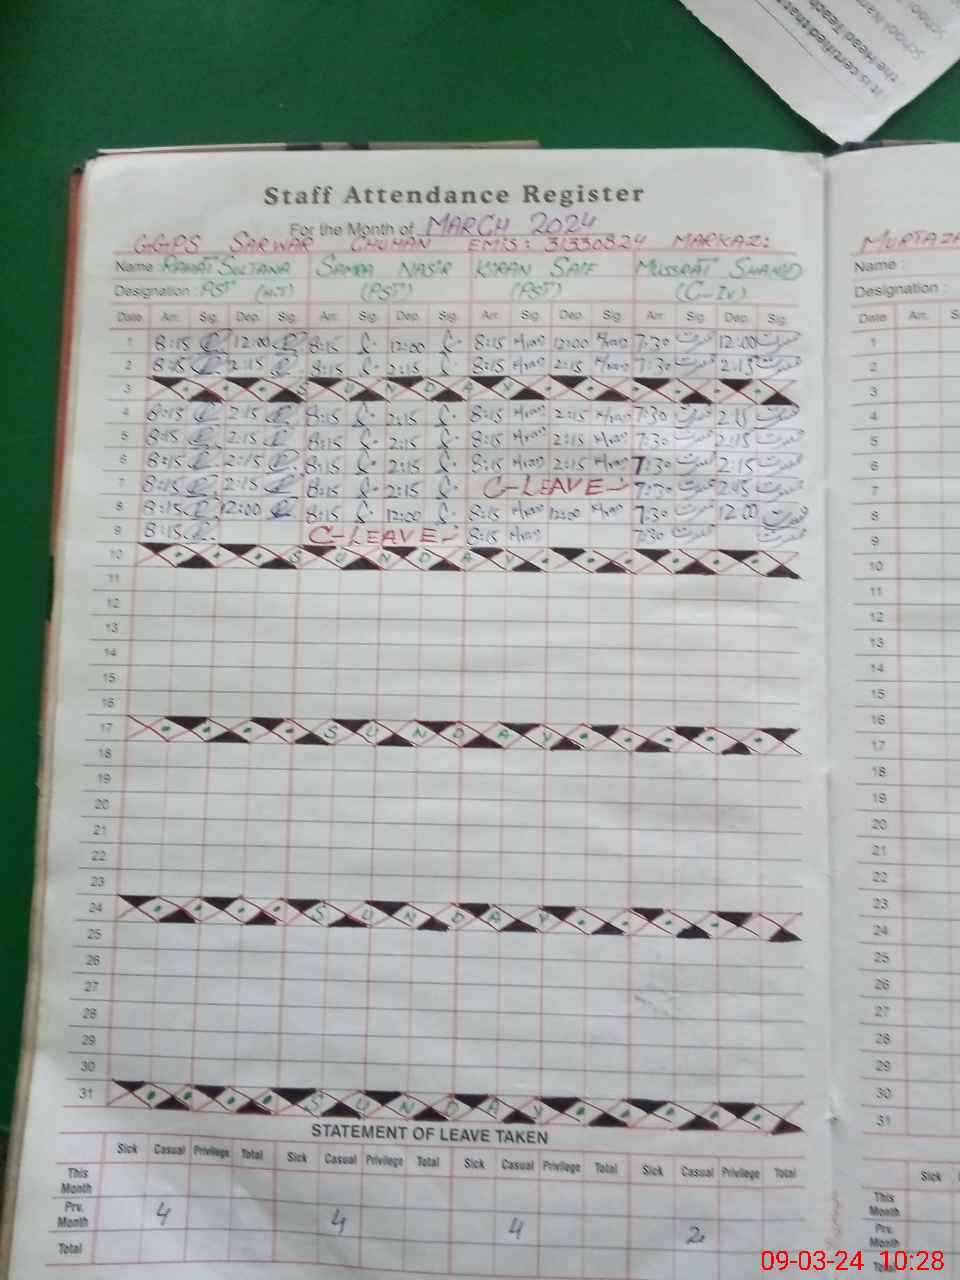 It is certified that
the Head Teach
School Nam
School
Staff Attendance Register
For the Month of MARCH 2024
GGPS SARWAR CHUMAN EMIS: 31330824 MARKAZ:
Name : RAHAT SULTANA SAMRA NASIR KIRAN SAIF MUSSRAT SHAHID
Designation : PST (HT) (PST) (PST) (C-IV)
Date Arr. Sig. Dep. Sig. Arr. Sig. Dep. Sig. Arr. Sig. Dep. Sig. Arr. Sig. Dep. Sig.
1 8:15 12:00 8:15 12:00 8:15 Kiran 12:00 Kiran 7:30 مسرت 12:00 مسرت
2 8:15 2:15 8:15 2:15 8:15 Kiran 2:15 Kiran 7:30 مسرت 2:15 مسرت
3 SUNDAY
4 8:15 2:15 8:15 2:15 8:15 Kiran 2:15 Kiran 7:30 مسرت 2:15 مسرت
5 8:15 2:15 8:15 2:15 8:15 Kiran 2:15 Kiran 7:30 مسرت 2:15 مسرت
6 8:15 2:15 8:15 2:15 8:15 Kiran 2:15 Kiran 7:30 مسرت 2:15 مسرت
7 8:15 2:15 8:15 2:15 C-LEAVE 7:30 مسرت 2:15 مسرت
8 8:15 12:00 8:15 12:00 8:15 Kiran 12:00 Kiran 7:30 مسرت 12:00 مسرت
9 8:15 C-LEAVE 8:15 Kiran 7:30 مسرت مسرت
10 SUNDAY
11
12
13
14
15
16
17 SUNDAY
18
19
20
21
22
23
24 SUNDAY
25
26
27
28
29
30
31 SUNDAY
STATEMENT OF LEAVE TAKEN
Sick Casual Privilege Total Sick Casual Privilege Total Sick Casual Privilege Total Sick Casual Privilege Total
This Month
Prv. Month 4 4 4 2
Total
MURTAZA
Name :
Designation :
Date Arr. Sig.
1
2
3
4
5
6
7
8
9
10
11
12
13
14
15
16
17
18
19
20
21
22
23
24
25
26
27
28
29
30
31
Sick
This Month
Prv. Month
09-03-24 10:28